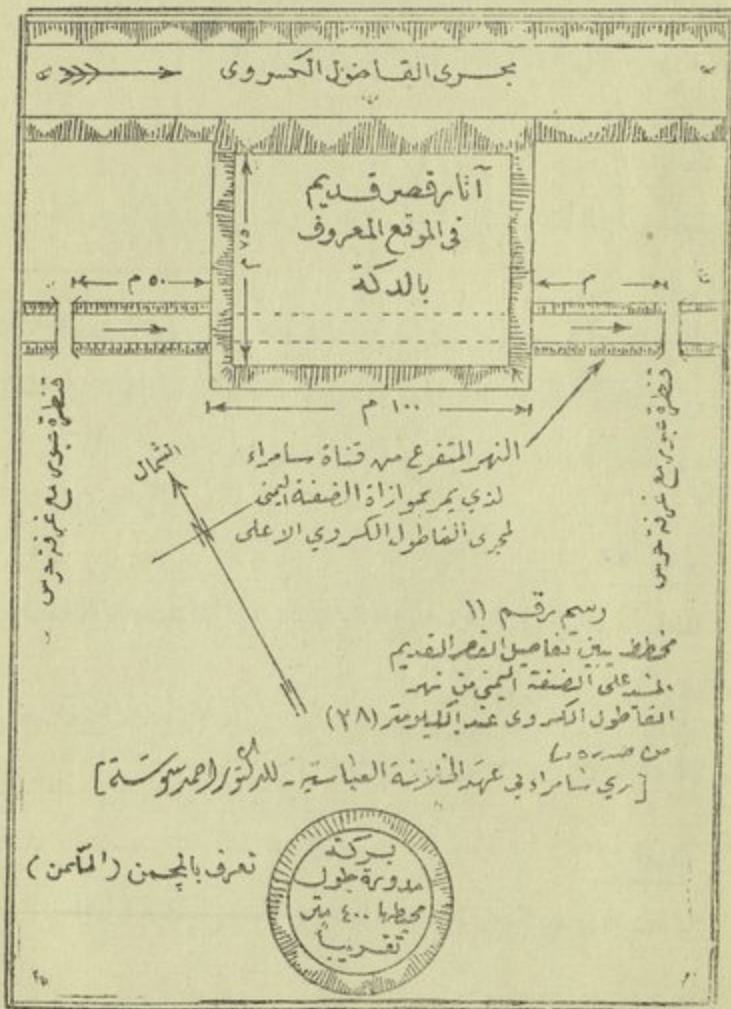 مجرى القاطول الكسروى
آثار قصر قديم
في الموقع المعروف
بالدكة
٧٥ م
٥٠ م
م
١٠٠ م
قنطرة عبور مع غرفة حرس
قنطرة عبور مع غرفة حرس
الشمال
النهر المتفرع من قناة سامراء
لذي يمر بموازاة الضفة اليمنى
لمجرى القاطول الكسروي الاعلى
رسم رقم ١١
مخطط يبين تفاصيل القصر القديم
على الضفة اليمنى من نهر
القاطول الكسروى عند الكيلومتر (٣٨)
من صدره
[ري سامراء في عهد الخلافة العباسية - للدكتور احمد سوسة]
بركة
مدورة طول
محيطها ٤٠٠ متر
تقريباً
تعرف بالمچمن (المكمن)